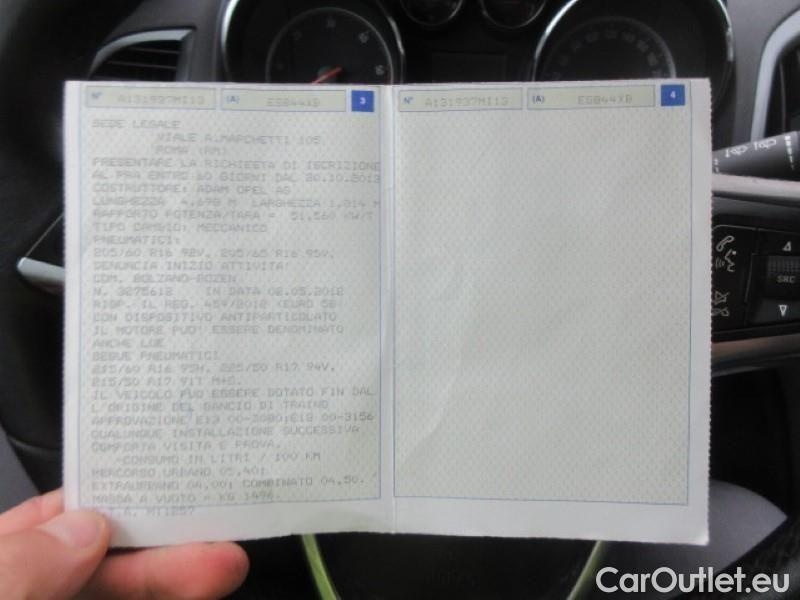 N° A131937MI13 (A) ES844XB 3
SEDE LEGALE
VIALE A.MARCHETTI 105
ROMA (RM)
PRESENTARE LA RICHIESTA DI ISCRIZIONE
AL PRA ENTRO 60 GIORNI DAL 20.10.2013
COSTRUTTORE: ADAM OPEL AG
LUNGHEZZA 4,698 M LARGHEZZA 1,814 M
RAPPORTO POTENZA/TARA = 51,560 KW/T
TIPO CAMBIO: MECCANICO
PNEUMATICI:
205/60 R16 92V, 205/65 R16 95V,
DENUNCIA INIZIO ATTIVITA'
COM. BOLZANO-BOZEN
N. 3275612 IN DATA 02.05.2012
RISP. IL REG. 459/2012 (EURO 5B)
CON DISPOSITIVO ANTIPARTICOLATO
IL MOTORE PUO' ESSERE DENOMINATO
ANCHE LUE
SEGUE PNEUMATICI
215/60 R16 95H, 225/50 R17 94V,
215/50 R17 91T M+S.
IL VEICOLO PUO ESSERE DOTATO FIN DAL
L'ORIGINE DEL GANCIO DI TRAINO
APPROVAZIONE E13 00-3080;E13 00-3156
QUALUNQUE INSTALLAZIONE SUCCESSIVA
COMPORTA VISITA E PROVA.
-CONSUMO IN LITRI / 100 KM
PERCORSO URBANO 05,40;
EXTRAURBANO 04,00; COMBINATO 04,50.
MASSA A VUOTO = KG 1496.
MI1257
N° A131937MI13 (A) ES844XB 4
SRC
CarOutlet.eu